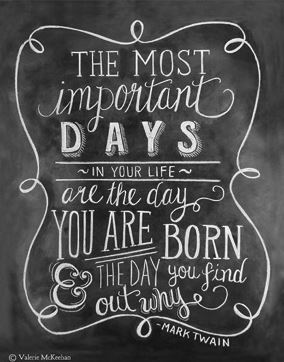 THE MOST
important
DAYS
~IN YOUR LIFE~
are the day
YOU ARE BORN
& THE DAY you find
out why
-MARK TWAIN
© Valerie McKeehan